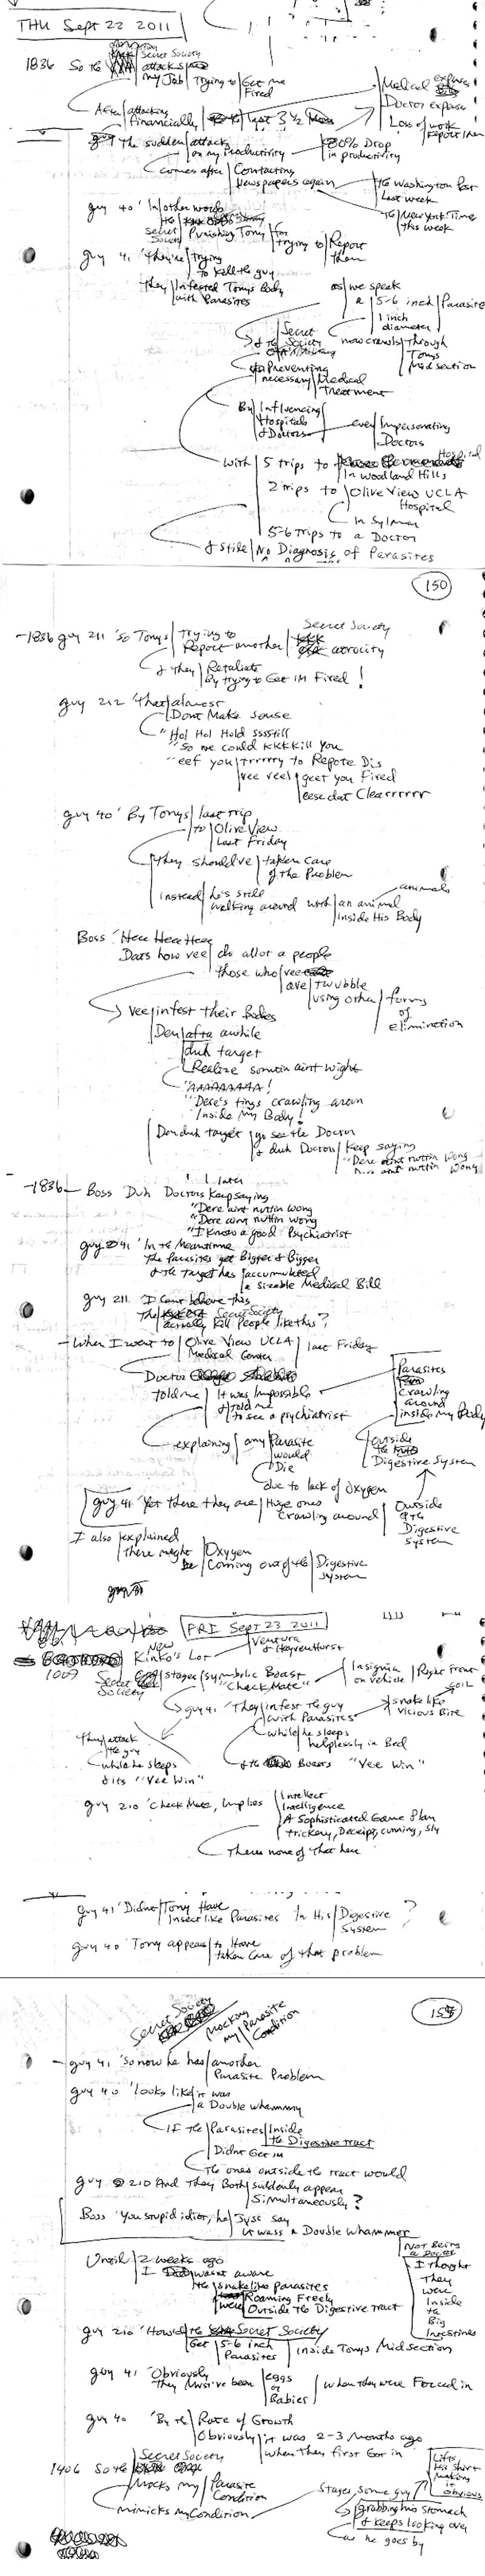 THU Sept 22 2011
1836 So the Secret Society
attacks
my Job Trying to Get me
Fired
After attacking
Financially last 3 ½
Medical expenses
Doctor expense
Loss of work
The sudden attack
on my Productivity
80% Drop
in productivity
comes after Contacting
Newspapers again
the Washington Post
Last week
the New York Time
this week
guy 40 'In other words
the
Secret Society Punishing Tony for
trying to Report
them
guy 41 'they're trying
to kill the guy
they Infested Tonys Body
with Parasites
as we speak
a 5-6 inch Parasite
1 inch
diameter
now crawls Through
Tonys
Midsection
& the Secret
Society
Preventing
necessary Medical
Treatment
By Influencing
Hospitals
& Doctors
even Impersonating
Doctors
with 5 trips to Hospital
In Woodland Hills
2 trips to Olive View UCLA
Hospital
In Sylmar
5-6 Trips to a Doctor
& still No Diagnosis of Parasites
150
1836 guy 211 'So Tonys Trying to
Report another Secret Society
atrocity
& they Retaliate
By trying to Get IM Fired!
guy 212 'that almost
Dont Make sense
"Hol Hol Hold sssstill
"So we could KKKKill you
"eef you trrrrry to Repote Dis
vee veel geet you Fired
eese dat Clearrrrrr
guy 40 'By Tonys last trip
to Olive View
Last Friday
they should've taken care
of the Problem
Instead he's still
walking around with an animal
animals
Inside His Body
Boss 'Here Here Here
Dats how vee do allot a people
those who vee
ave twubble
using other forms
of
elimination
Vee infest their bodies
Den afta awhile
duh target
Realize somtin aint wight
"AAAAAAAAA!
"Dere's tings crawling aroun
Inside My Body!
Den duh target go see the Doctor
& duh Doctors Keep saying
"Dere aint nuttin wong
Dere aint nuttin wong
1836 Boss 'Duh Doctors Keep saying
"Dere aint nuttin wong
"Dere aint nuttin wong
"I know a good Psychiatrist
guy 41 'In the Meantime
The Parasites get Bigger & Bigger
& the target has accumulated
a sizable Medical Bill
guy 211 'I cant believe this
The Secret Society
actually Kill People like this?
When I went to Olive View UCLA
Medical Center
last Friday
Doctor
told me It was Impossible
& told me
to see a psychiatrist
Parasites
crawling
around
inside my Body
outside
the
Digestive System
explaining any Parasite
would
Die
due to lack of Oxygen
guy 41 'Yet there they are Huge ones
crawling around
Outside
the
Digestive
System
I also explained
There might be Oxygen
Coming out of the Digestive
System
FRI Sept 23 2011
New
Kinko's Lot Ventura
& Hayvenhurst
1009 Secret
Society stages symbolic Boast
"CheckMate"
Insignia
on vehicle Right Front
guy 41 'They infest the guy
with Parasites
snake like
vicious Bite
while he sleeps
helplessly in Bed
& the Boasts "Vee Win"
they attack
the guy
while he sleeps
& its "Vee Win"
guy 210 'CheckMate, Implies Intellect
Intelligence
A Sophisticated Game Plan
trickery, Deceipt, cunning, sly
Theres none of that here
guy 41 'Didnt Tony Have
Insect like Parasites In His Digestive
System?
guy 40 'Tony appears to Have
taken care of that problem
Secret Society
Mocking
my Parasite
Condition
guy 41 'So now he has another
Parasite Problem
guy 40 'looks like it was
a Double whammy
If the Parasites Inside
the Digestive tract
Didnt Get IM
The ones outside the tract would
guy 210 And they Both suddenly appear
Simultaneously?
Boss 'You stupid idiot, he Just say
it wass a Double whammer
Until 2 weeks ago
I wasnt aware
the snake like Parasites
were Roaming Freely
Outside the Digestive Tract
Not Being
a Doctor
I thought
They
were
Inside
the
Big
Intestines
guy 210 'How'd the Secret Society
Get 5-6 inch
Parasites Inside Tonys Midsection
guy 41 'Obviously
they Must've been eggs
or
Babies
when they were Forced in
guy 40 'By the Rate of Growth
Obviously it was 2-3 Months ago
when they first Got in
1406 So the Secret Society
Mocks my Parasite
Condition
mimicks my Condition
Stages some guy
grabbing his stomach
& keeps looking over
as he goes by
Lifts
His Shirt
Making
it
obvious